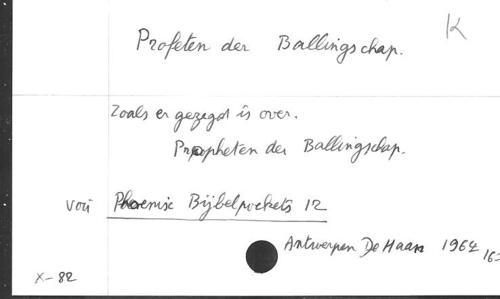 K
Profeten der Ballingschap.
Zoals er gezegd is over.
Propheten der Ballingschap.
voir Phoenix Bijbelpockets 12
Antwerpen De Haan 1964
16-
X-82